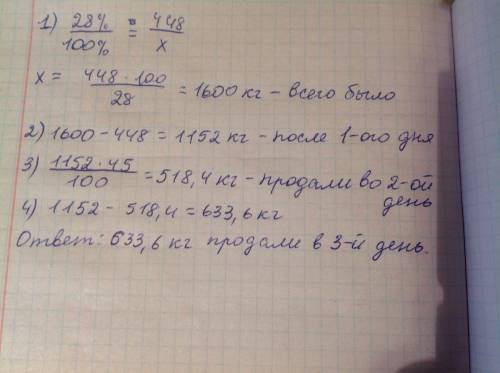 1) 28% / 100% = 448 / x
x = 448 · 100 / 28 = 1600 кг – всего было
2) 1600 – 448 = 1152 кг – после 1-ого дня
3) 1152 · 45 / 100 = 518,4 кг – продали во 2-ой
день
4) 1152 – 518,4 = 633,6 кг
Ответ: 633,6 кг продали в 3-й день.